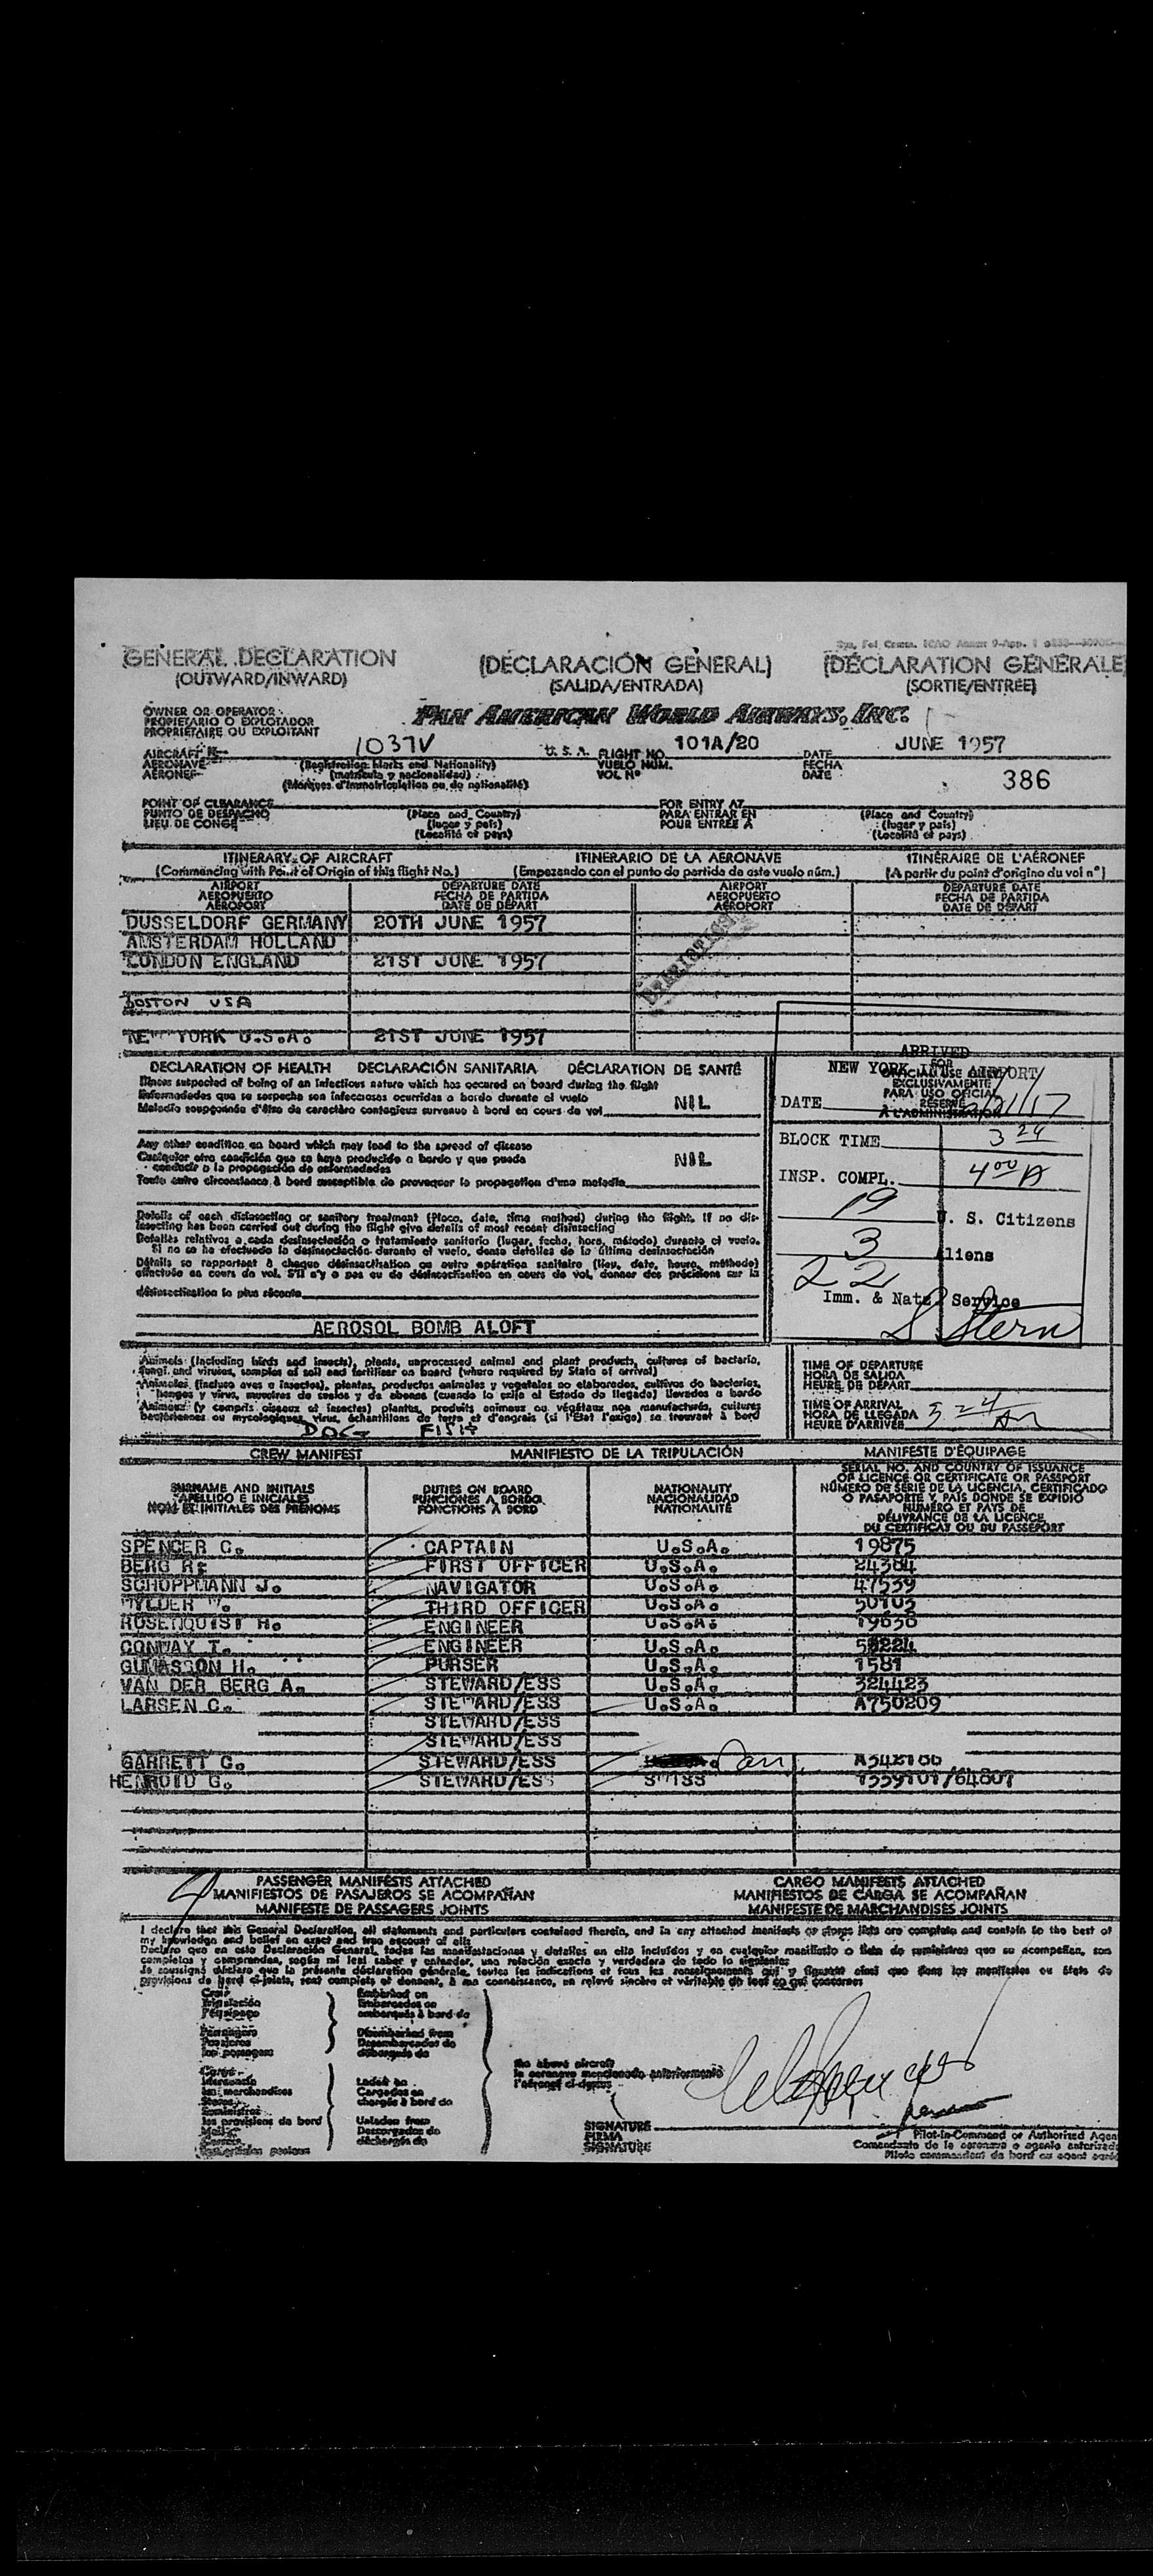 GENERAL DECLARATION (DECLARACIÓN GENERAL) (DÉCLARATION GÉNÉRALE
(OUTWARD/INWARD) (SALIDA/ENTRADA) (SORTIE/ENTRÉE)
OWNER OR OPERATOR
PROPIETARIO O EXPLOTADOR
PROPRIÉTAIRE OU EXPLOITANT
PAN AMERICAN WORLD AIRWAYS, INC.
AIRCRAFT 1037V U.S.A. FLIGHT NO. 101A/20 DATE JUNE 1957
AERONAVE (Registration Marks and Nationality) VUELO NÚM. FECHA
AÉRONEF (matrícula y nacionalidad) VOL Nº DATE 386
(Marques d'immatriculation ou de nationalité)
POINT OF CLEARANCE (Place and Country) FOR ENTRY AT (Place and Country)
PUNTO DE DESPACHO (lugar y país) PARA ENTRAR EN (lugar y país)
LIEU DE CONGÉ (Localité et pays) POUR ENTRÉE À (Localité et pays)
ITINERARY OF AIRCRAFT ITINERARIO DE LA AERONAVE ITINÉRAIRE DE L'AÉRONEF
(Commencing with Point of Origin of this flight No.) (Empezando con el punto de partida de este vuelo núm.) (A partir du point d'origine du vol nº)
AIRPORT DEPARTURE DATE AIRPORT DEPARTURE DATE
AEROPUERTO FECHA DE PARTIDA AEROPUERTO FECHA DE PARTIDA
AÉROPORT DATE DE DÉPART AÉROPORT DATE DE DÉPART
DUSSELDORF GERMANY 20TH JUNE 1957
AMSTERDAM HOLLAND
LONDON ENGLAND 21ST JUNE 1957
BOSTON USA
NEW YORK U.S.A. 21ST JUNE 1957
DECLARATION OF HEALTH DECLARACIÓN SANITARIA DÉCLARATION DE SANTÉ
Illness suspected of being of an infectious nature which has occured on board during the flight
Enfermedades que se sospecha son infecciosas ocurridas a bordo durante el vuelo
Maladie soupçonnée d'être de caractère contagieux survenue à bord en cours de vol NIL
Any other condition on board which may lead to the spread of disease
Cualquier otra condición que se haya producido a bordo y que pueda
conducir a la propagación de enfermedades NIL
Toute autre circonstance à bord susceptible de provoquer la propagation d'une maladie
Details of each disinsecting or sanitary treatment (Place, date, time method) during the flight. If no dis-
insecting has been carried out during the flight give details of most recent disinsecting
Detalles relativos a cada desinsectación o tratamiento sanitario (lugar, fecha, hora, método) durante el vuelo.
Si no se ha efectuado la desinsectación durante el vuelo, dense detalles de la última desinsectación
Détails se rapportant à chaque désinsectisation ou autre opération sanitaire (lieu, date, heure, méthode)
effectuée en cours de vol. S'il n'y a pas eu de désinsectisation en cours de vol, donner des précisions sur la
désinsectisation la plus récente
AEROSOL BOMB ALOFT
ARRIVED
NEW YORK INT. AIRPORT
FOR
OFFICIAL USE ONLY
EXCLUSIVAMENTE
PARA USO OFICIAL
RÉSERVÉ
À L'ADMINISTRATION
DATE
BLOCK TIME 3 24
INSP. COMPL. 4 00 A
19 U. S. Citizens
3 Aliens
22
Imm. & Natz. Service
S Stern
Animals (including birds and insects), plants, unprocessed animal and plant products, cultures of bacteria,
fungi and viruses, samples of soil and fertilizer on board (where required by State of arrival)
Animales (incluso aves e insectos), plantas, productos animales y vegetales no elaborados, cultivos de bacterias,
hongos y virus, muestras de suelos y de abonos (cuando lo exija el Estado de llegada) llevados a bordo
Animaux (y compris oiseaux et insectes) plantes, produits animaux ou végétaux non manufacturés, cultures
bactériennes ou mycologiques, virus, échantillons de terre et d'engrais (si l'État l'exige) se trouvant à bord
DOG FISH
TIME OF DEPARTURE
HORA DE SALIDA
HEURE DE DÉPART
TIME OF ARRIVAL
HORA DE LLEGADA
HEURE D'ARRIVÉE
CREW MANIFEST MANIFIESTO DE LA TRIPULACIÓN MANIFESTE D'ÉQUIPAGE
SURNAME AND INITIALS
APELLIDO E INICIALES
NOM ET INITIALES DES PRÉNOMS
DUTIES ON BOARD
FUNCIONES A BORDO
FONCTIONS À BORD
NATIONALITY
NACIONALIDAD
NATIONALITÉ
SERIAL NO. AND COUNTRY OF ISSUANCE
OF LICENCE OR CERTIFICATE OR PASSPORT
NÚMERO DE SERIE DE LA LICENCIA, CERTIFICADO
O PASAPORTE Y PAÍS DONDE SE EXPIDIÓ
NUMÉRO ET PAYS DE
DÉLIVRANCE DE LA LICENCE
DU CERTIFICAT OU DU PASSEPORT
SPENCER C. CAPTAIN U.S.A. 19875
BERG R. FIRST OFFICER U.S.A. 24384
SCHOPPMANN J. NAVIGATOR U.S.A. 47539
WYLDER W. THIRD OFFICER U.S.A. 50103
ROSENQUIST H. ENGINEER U.S.A. 19630
CONWAY T. ENGINEER U.S.A.
GUNASSON H. PURSER U.S.A. 1581
VAN DER BERG A. STEWARD/ESS U.S.A. 324423
LARSEN C. STEWARD/ESS U.S.A. A750209
STEWARD/ESS
STEWARD/ESS
GARRETT C. STEWARD/ESS
HENROID G. STEWARD/ESS SWISS
4
PASSENGER MANIFESTS ATTACHED CARGO MANIFESTS ATTACHED
MANIFIESTOS DE PASAJEROS SE ACOMPAÑAN MANIFIESTOS DE CARGA SE ACOMPAÑAN
MANIFESTE DE PASSAGERS JOINTS MANIFESTE DE MARCHANDISES JOINTS
I declare that this General Declaration, all statements and particulars contained therein, and in any attached manifests or stores lists are complete and contain to the best of
my knowledge and belief an exact and true account of all:
Declaro que en esta Declaración General, todas las manifestaciones y detalles en ella incluídos y en cualquier manifiesto o lista de suministros que se acompañan, son
completos y comprenden, según mi leal saber y entender, una relación exacta y verdadera de todo lo siguiente:
Je soussigné déclare que la présente déclaration générale, toutes les indications et tous les renseignements qui y figurent ainsi que dans les manifestes ou états de
provisions de bord ci-joints, sont complets et donnent, à ma connaissance, un relevé sincère et véritable de tout ce qui concerne:
Crew
Tripulación
l'équipage
Passengers
Pasajeros
les passagers
Embarked on
Embarcados en
embarqués à bord de
Disembarked from
Desembarcados de
débarqués de
Cargo
Mercancía
les marchandises
Stores
Suministros
les provisions de bord
Laden on
Cargados en
chargés à bord de
Unladen from
Descargados de
déchargés de
the above aircraft
la aeronave mencionada anteriormente
l'aéronef ci-dessus
SIGNATURE
FIRMA
SIGNATURE
Pilot-in-Command or Authorized Agen
Comandante de la aeronave o agente autorizado
Pilote commandant de bord ou agent